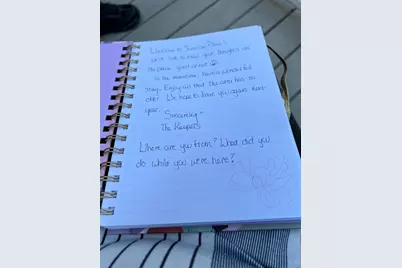 Welcome to Sunrise
We'd love to know your thoughts on
the place good or not ☺
In the meantime, have a wonderful
stay. Enjoy all that the area has to
offer. We hope to have you again next
year.
Sincerely -
The Keepers
Where are you from? What did you
do while you were here?